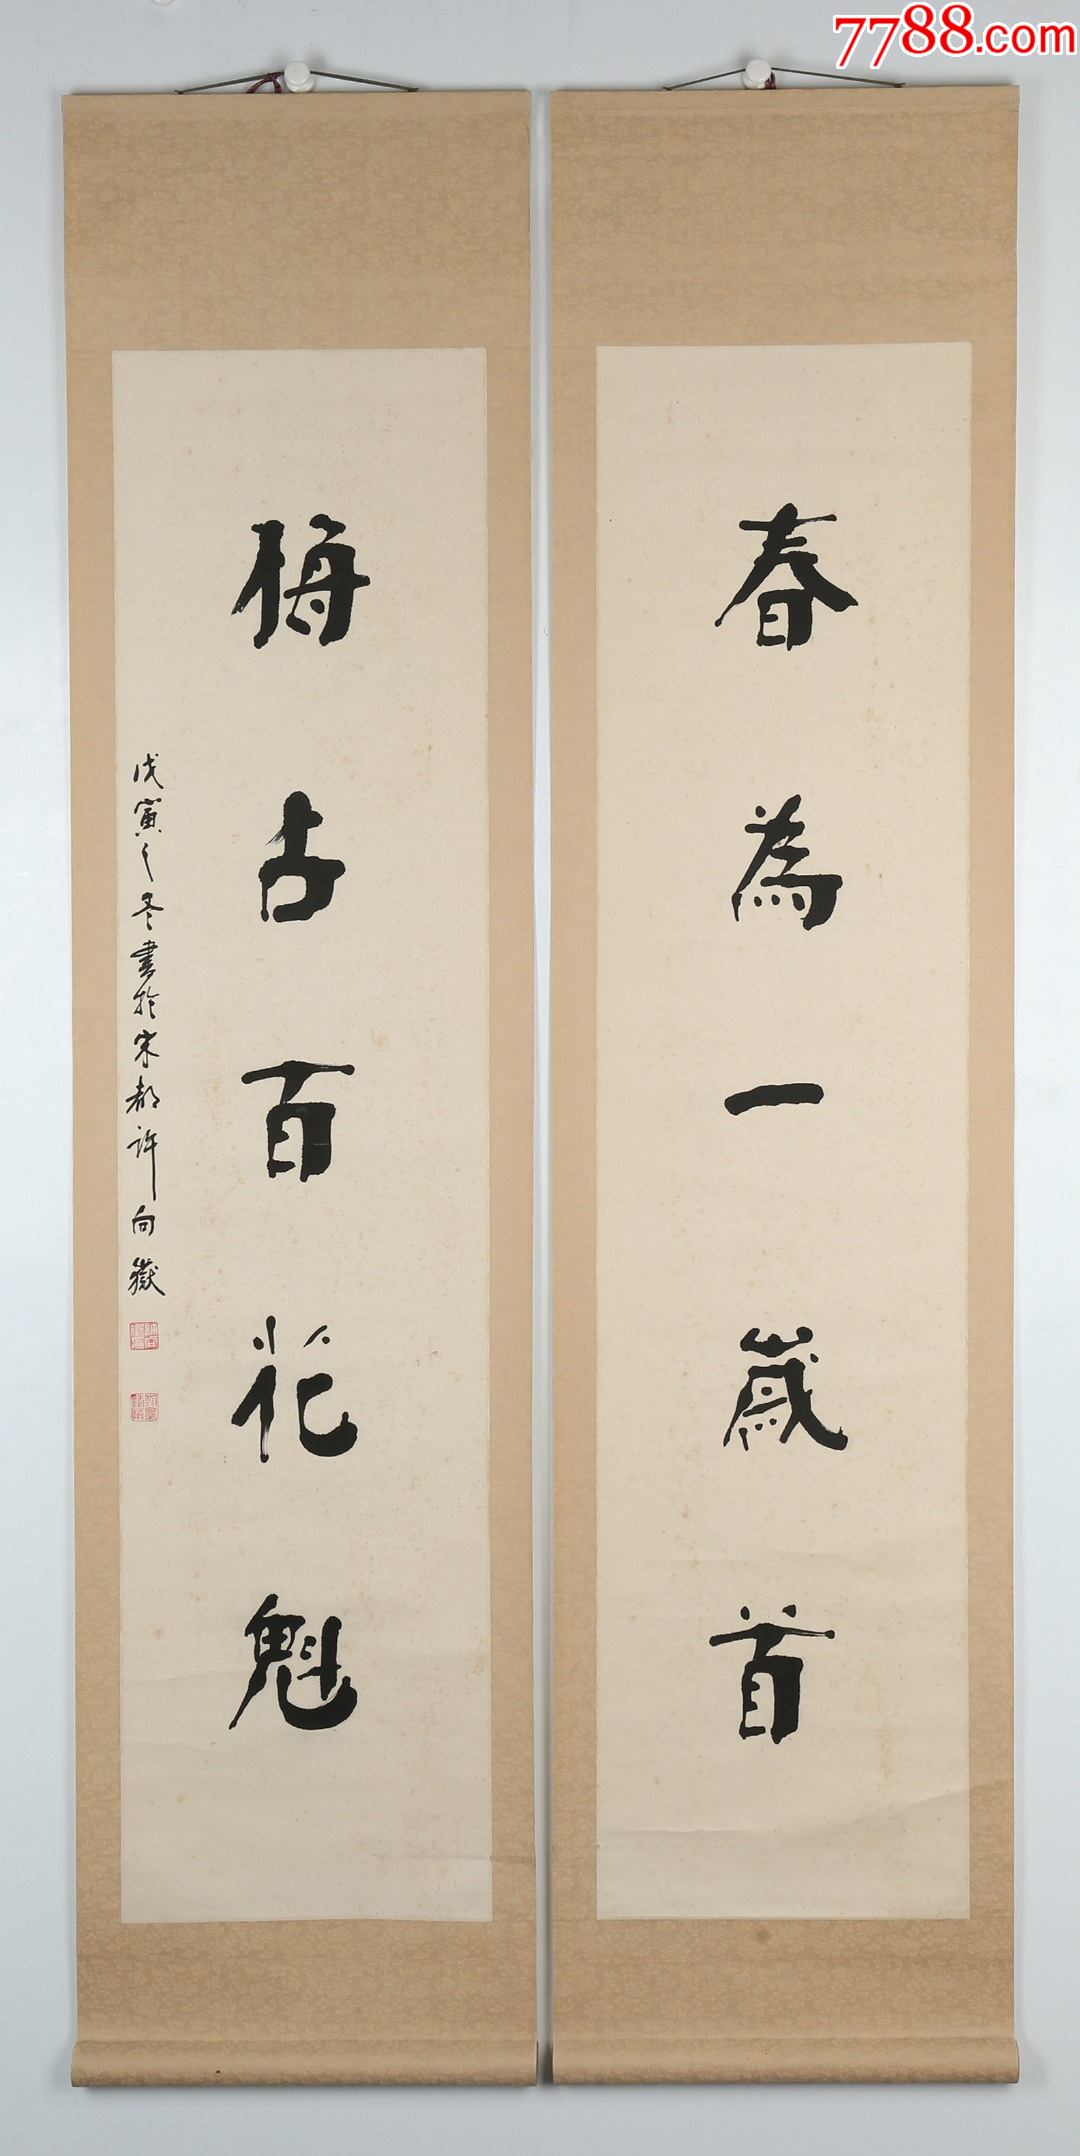 7788.com
春為一歲首
梅占百花魁
戊寅之冬書於宋都許向嶽